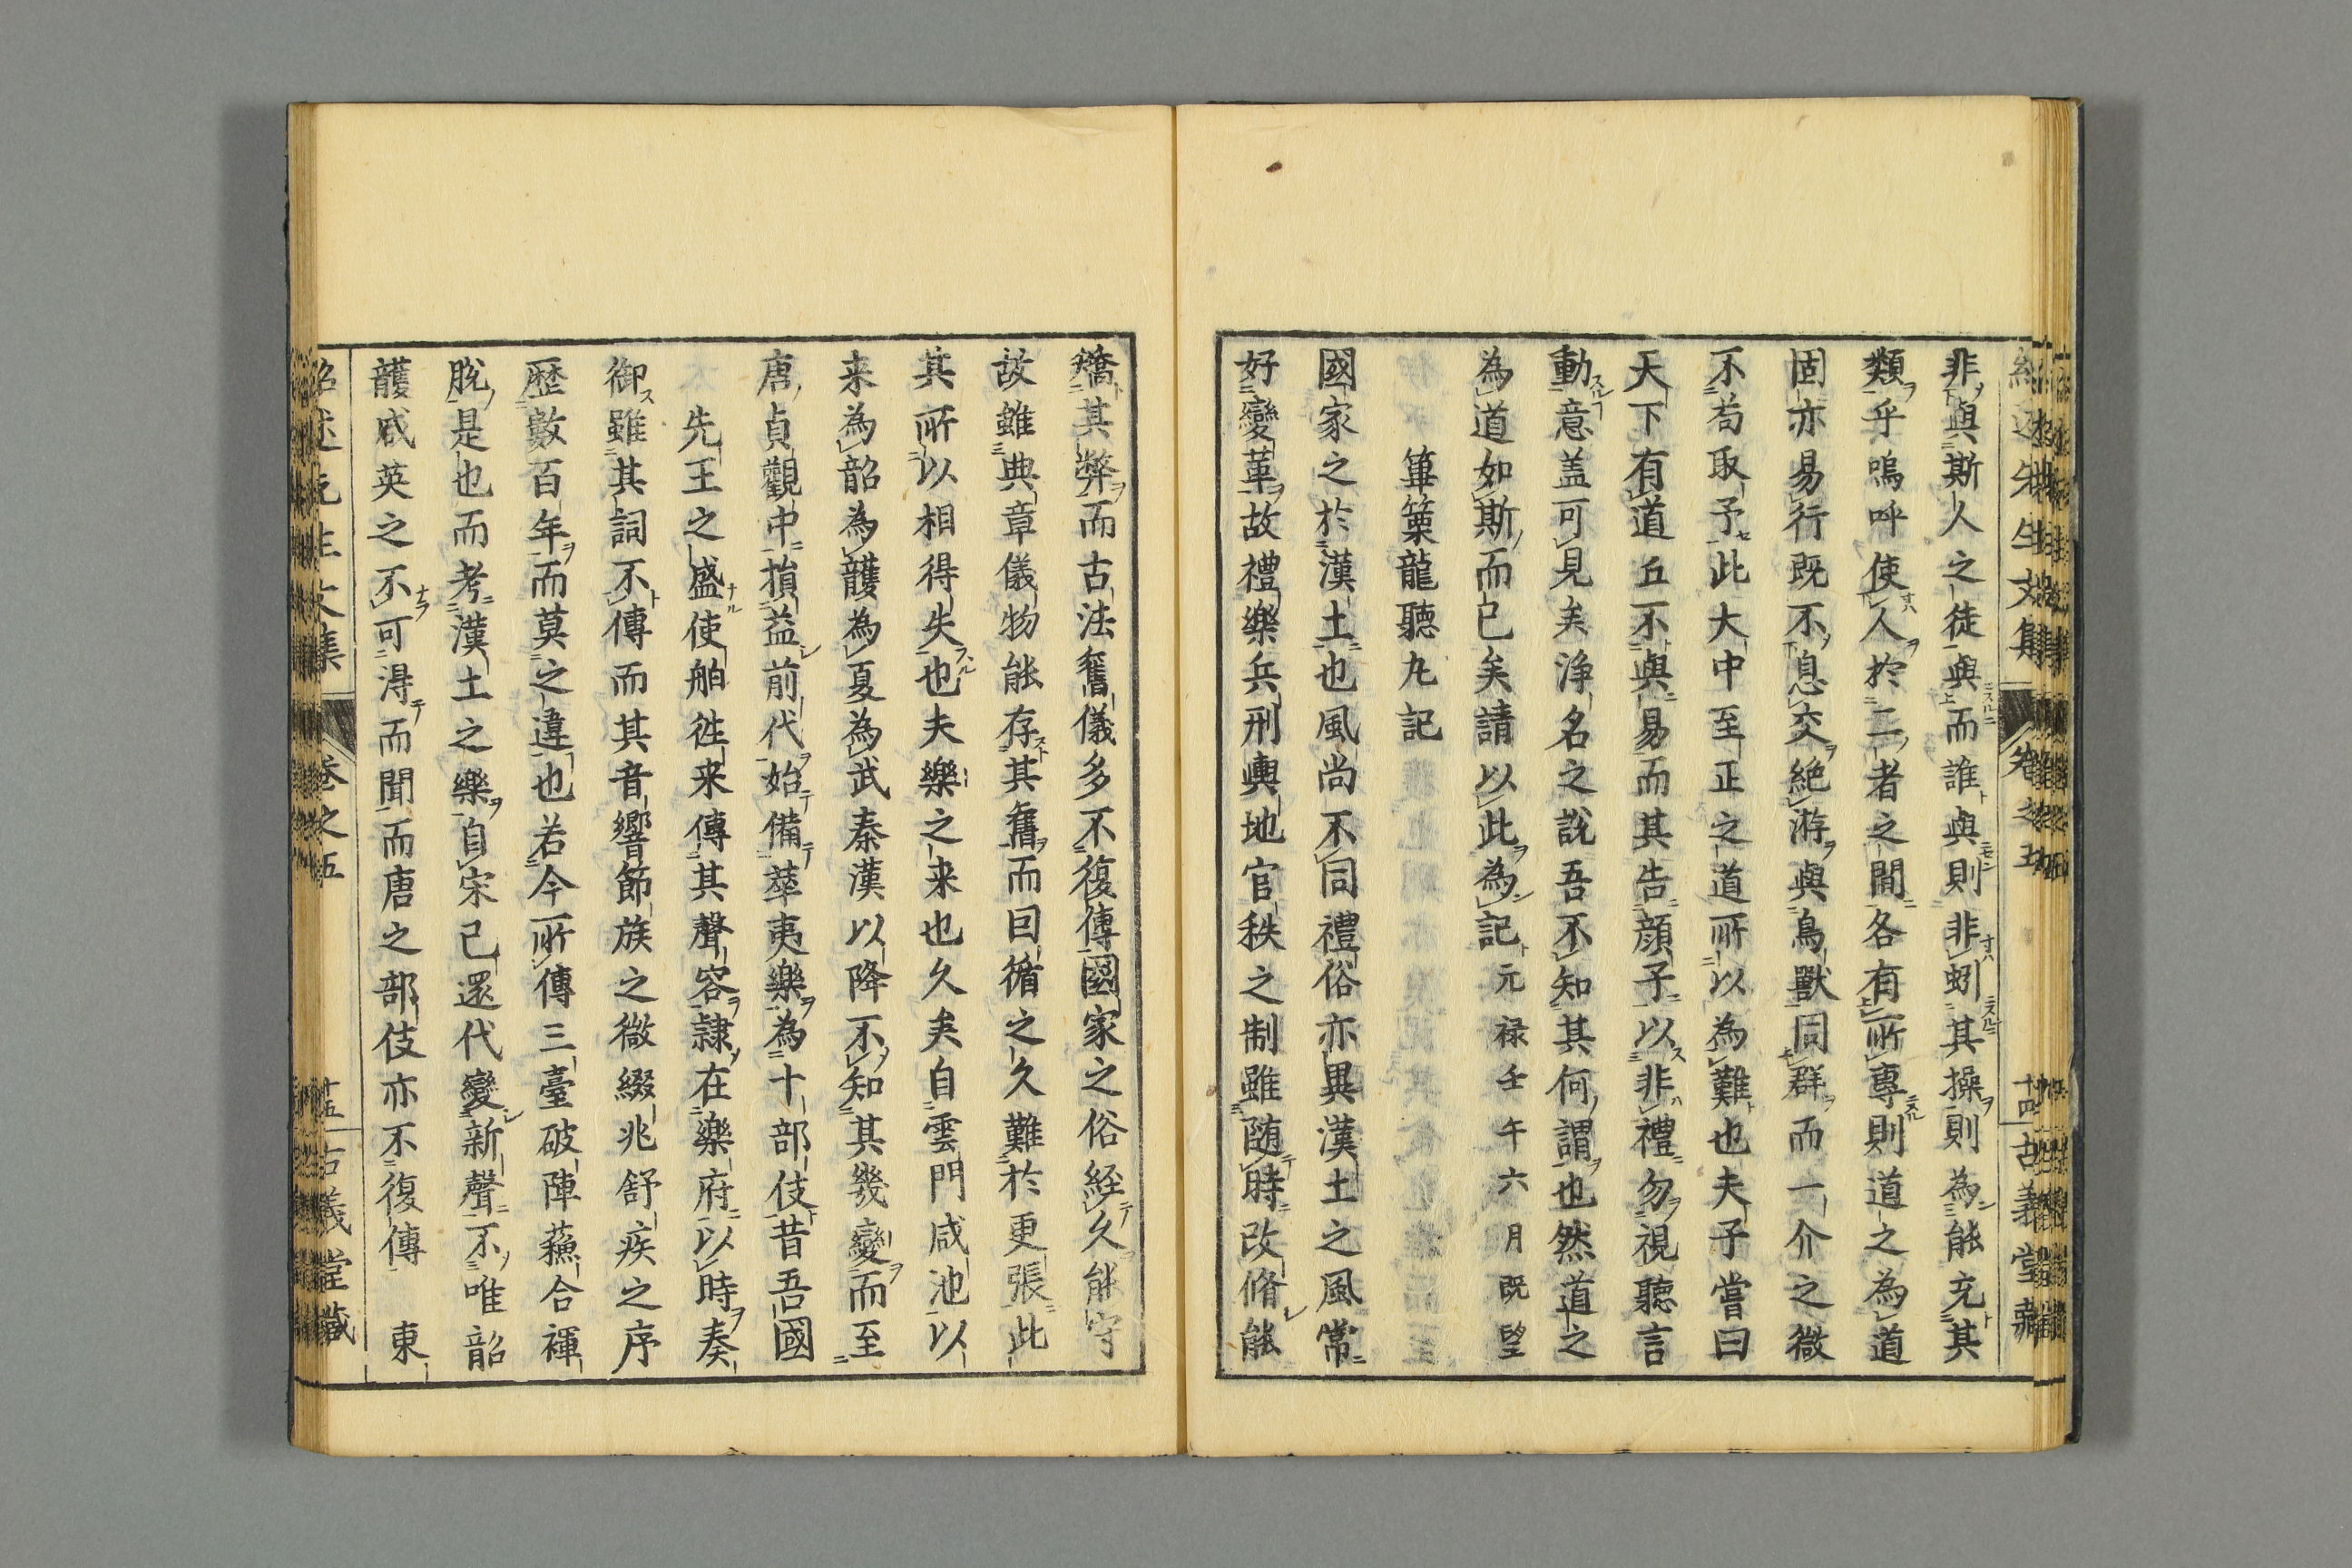 紹述先生文集 卷之五 十四 古義堂藏
非與斯人之徒與而誰與則非蚓其操則為能充其
類乎嗚呼使人於二者之間各有所專則道之為道
固亦易行既不息交絶游與鳥獸同群而一介之微
不苟取予此大中至正之道所以為難也夫子嘗曰
天下有道丘不與易而其告顔子以非禮勿視聽言
動意盖可見矣淨名之説吾不知其何謂也然道之
為道如斯而已矣請以此為記元禄壬午六月既望
篳篥龍聽丸記
國家之於漢土也風尚不同禮俗亦異漢土之風常
好變革故禮樂兵刑輿地官秩之制雖随時改脩能
矯其弊而古法舊儀多不復傳國家之俗経久能守
故雖典章儀物能存其舊而因循之久難於更張此
其所以相得失也夫樂之来也久矣自雲門咸池以
来為韶為頀為夏為武秦漢以降不知其幾變而至
唐貞觀中損益前代始備華夷樂為十部伎昔吾國
先王之盛使舶徃来傳其聲容隷在樂府以時奏
御雖其詞不傳而其音響節族之微綴兆舒疾之序
歴數百年而莫之違也若今所傳三臺破陣蘓合褌
脱是也而考漢土之樂自宋已還代變新聲不唯韶
頀咸英之不可淂而聞而唐之部伎亦不復傳 東
紹述先生文集 卷之五 十五 古義堂藏